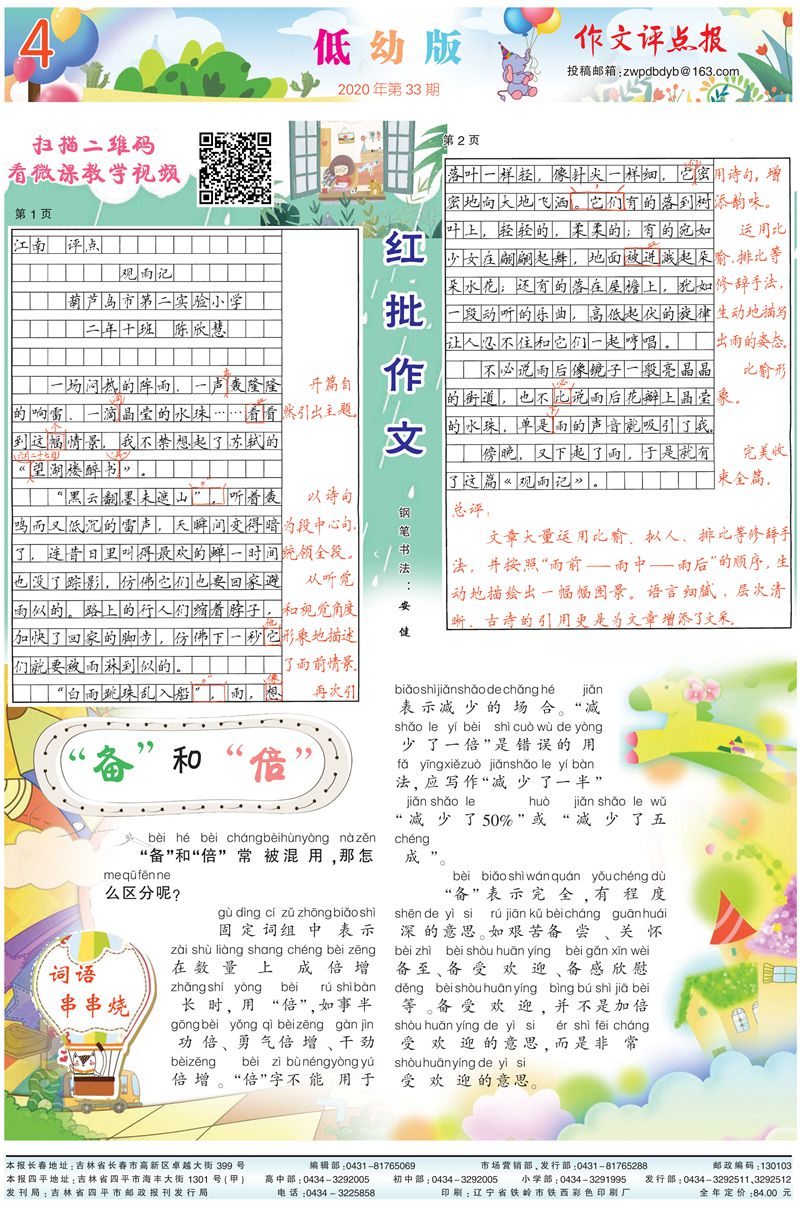 4
低幼版
2020年第33期
作文评点报
投稿邮箱:zwpdbdyb@163.com
扫描二维码
看微课教学视频
第1页
江南 评点
观雨记
葫芦岛市第二实验小学
二年十班 陈欣慧
一场闷热的阵雨,一声轰隆隆
的响雷、一滴晶莹的水珠……看看
到这幅情景,我不禁想起了苏轼的
“望湖楼醉书”。
“黑云翻墨未遮山”,听着轰
鸣而又低沉的雷声,天瞬间变得暗
了,连昔日里叫得最欢的蝉一时间
也没了踪影,仿佛它们也要回家避
雨似的。路上的行人们缩着脖子,
加快了回家的脚步,仿佛下一秒它
们就要被雨淋到似的。
“白雨跳珠乱入船”,雨,想
开篇自
然引出主题。
六月二十七日
以诗句
为段中心句,
统领全段。
从听觉
和视觉角度
形象地描述
了雨前情景。
他
像
再次引
红批作文
钢笔书法:安健
第2页
落叶一样轻,像针尖一样细,它密
密地向大地飞洒。它们有的落到树
叶上,轻轻的,柔柔的;有的宛如
少女在翩翩起舞,地面被迸溅起朵
朵水花;还有的落在屋檐上,犹如
一段动听的乐曲,高低起伏的旋律
让人忍不住和它们一起哼唱。
不必说雨后像镜子一般亮晶晶
的街道,也不比说雨后花瓣上晶莹
的水珠,单是雨的声音就吸引了我。
傍晚,又下起了雨,于是就有
了这篇《观雨记》。
用诗句,增
添韵味。
运用比
喻、排比等
修辞手法,
生动地描写
出雨的姿态。
比喻形
象。
必
完美收
束全篇。
总评:
文章大量运用比喻、拟人、排比等修辞手
法,并按照“雨前——雨中——雨后”的顺序,生
动地描绘出一幅幅图景。语言细腻,层次清
晰,古诗的引用更是为文章增添了文采。
“备”和“倍”
bèi hé bèi chángbèihùnyòng nàzěn
“备”和“倍”常被混用,那怎
me qū fēn ne
么区分呢?
gù dìng cí zǔ zhōng biǎo shì
固定词组中表示
zài shù liàng shang chéng bèi zēng
在数量上成倍增
zhǎng shí yòng bèi rú shì bàn
长时,用“倍”,如事半
gōng bèi yǒng qì bèi zēng gàn jìn
功倍、勇气倍增、干劲
bèi zēng bèi zì bù néng yòng yú
倍增。“倍”字不能用于
词语
串串烧
biǎo shì jiǎn shǎo de chǎng hé jiǎn
表示减少的场合。“减
shǎo le yí bèi shì cuò wù de yòng
少了一倍”是错误的用
fǎ yīng xiě zuò jiǎn shǎo le yí bàn
法,应写作“减少了一半”
jiǎn shǎo le huò jiǎn shǎo le wǔ
“减少了50%”或“减少了五
chéng
成”。
bèi biǎo shì wán quán yǒu chéng dù
“备”表示完全,有程度
shēn de yì si rú jiān kǔ bèi cháng guān huái
深的意思。如艰苦备尝、关怀
bèi zhì bèi shòu huān yíng bèi gǎn xīn wèi
备至、备受欢迎、备感欣慰
děng bèi shòu huān yíng bìng bú shì jiā bèi
等。备受欢迎,并不是加倍
shòu huān yíng de yì si ér shì fēi cháng
受欢迎的意思,而是非常
shòu huān yíng de yì si
受欢迎的意思。
本报长春地址:吉林省长春市高新区卓越大街399号 编辑部:0431-81765069 市场营销部、发行部:0431-81765288 邮政编码:130103
本报四平地址:吉林省四平市海丰大街1301号(甲) 高中部:0434-3292005 初中部:0434-3292005 小学部:0434-3291995 发行部:0434-3292511、3292512
发刊局:吉林省四平市邮政报刊发行局 电话:0434-3225858 印刷:辽宁省铁岭市铁西彩色印刷厂 全年定价:84.00元